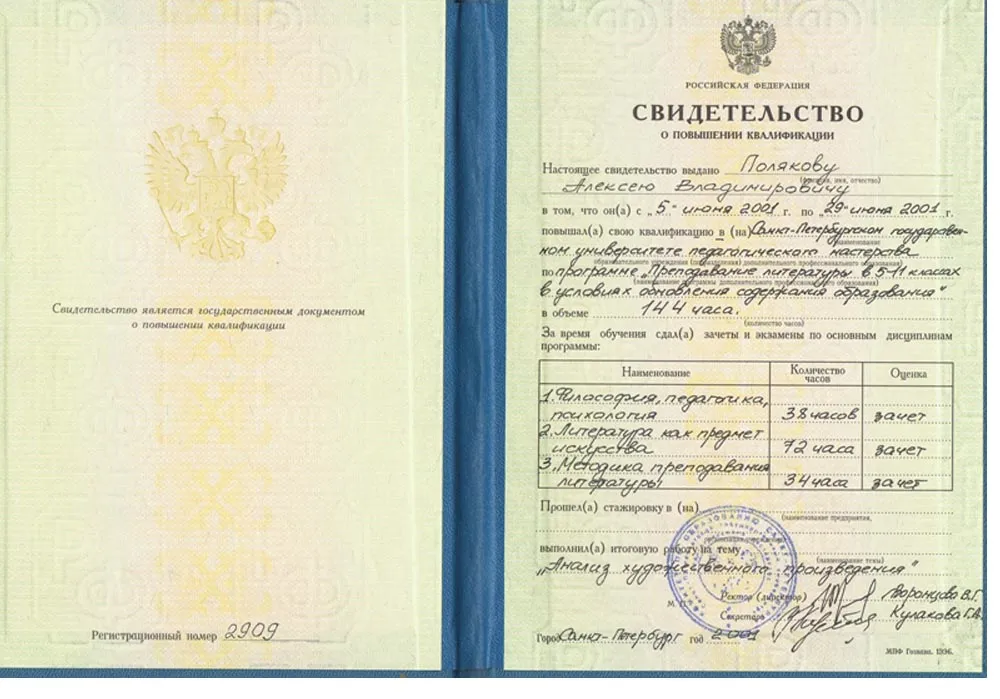 Свидетельство является государственным документом
о повышении квалификации
Регистрационный номер 2909
РОССИЙСКАЯ ФЕДЕРАЦИЯ
СВИДЕТЕЛЬСТВО
О ПОВЫШЕНИИ КВАЛИФИКАЦИИ
Настоящее свидетельство выдано Полякову
(фамилия, имя, отчество)
Алексею Владимировичу
в том, что он(а) с „5" июня 2001 г. по „29" июня 2001 г.
повышал(а) свою квалификацию в (на) Санкт-Петербургском государствен-
(наименование
ном университете педагогического мастерства
образовательного учреждения (подразделения) дополнительного профессионального образования)
по программе „Преподавание литературы в 5-11 классах
(наименование программы дополнительного профессионального образования)
в условиях обновления содержания образования"
в объеме 144 часа.
(количество часов)
За время обучения сдал(а) зачеты и экзамены по основным дисциплинам
программы:
Наименование Количество часов Оценка
1. Философия, педагогика,
психология 38 часов зачет
2. Литература как предмет
искусства 72 часа зачет
3. Методика преподавания
литературы 34 часа зачет
Прошел(а) стажировку в (на)
(наименование предприятия,
выполнил(а) итоговую работу на тему
(наименование темы)
„Анализ художественного произведения"
Ректор (директор) Воронцова В.Г.
М. П.
Секретарь Кулакова Г.А.
Город Санкт-Петербург год 2001
МПФ Гознака. 1996.